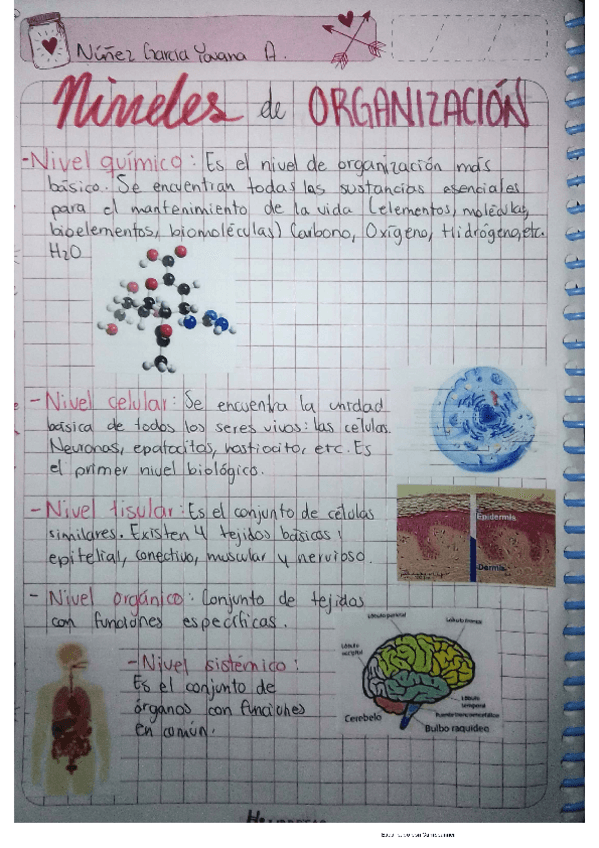 Núñez García Yovana A.
Niveles de ORGANIZACIÓN
-Nivel químico: Es el nivel de organización más
básico. Se encuentran todas las sustancias esenciales
para el mantenimiento de la vida (elementos, moléculas,
bioelementos, biomoléculas) Carbono, Oxígeno, Hidrógeno, etc.
H2O
- Nivel celular: Se encuentra la unidad
básica de todos los seres vivos: las células.
Neuronas, epatocitos, hostiocito, etc. Es
el primer nivel biológico.
- Nivel tisular: Es el conjunto de células
similares. Existen 4 tejidos básicos:
epitelial, conectivo, muscular y nervioso.
Epidermis
Dermis
- Nivel orgánico: Conjunto de tejidos
con funciones específicas.
Lóbulo parietal
Lóbulo frontal
Lóbulo
occipital
Lóbulo
temporal
Cerebelo
Bulbo raquídeo
-Nivel sistémico:
Es el conjunto de
órganos con funciones
en común.